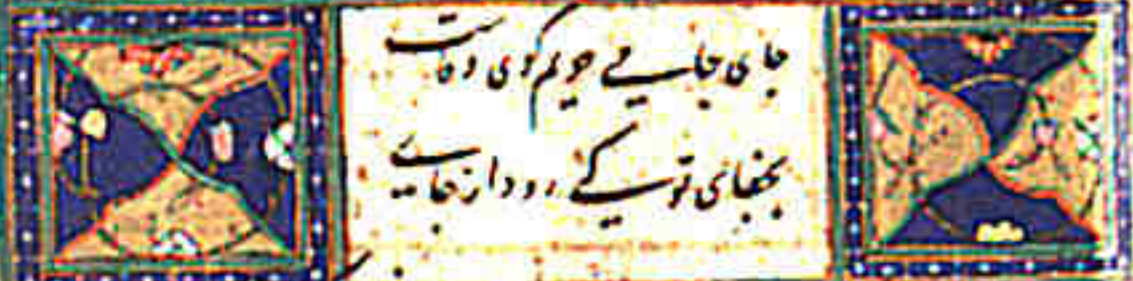 جای جامی حریم کوی وفاست
بجفای تو کی رود از جای